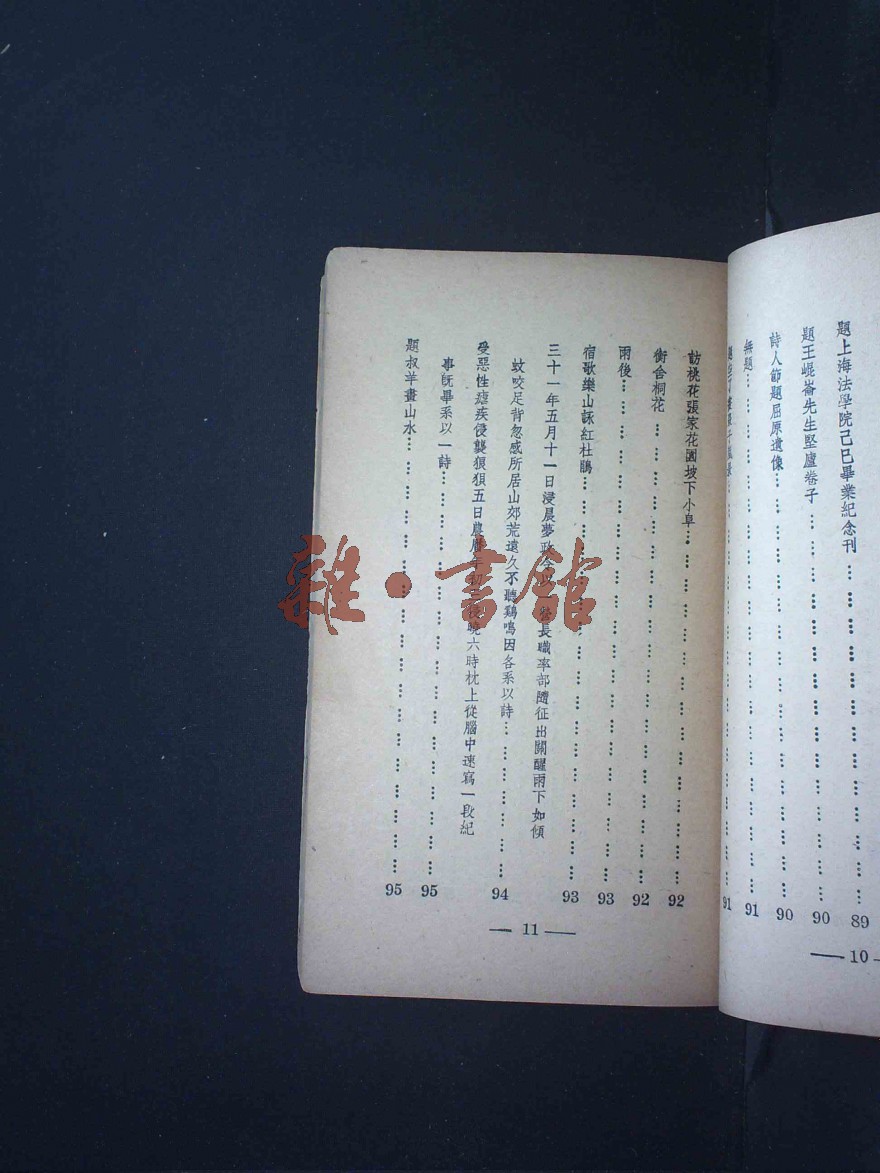 題上海法學院己巳畢業紀念刊…………………………89
題王崐崙先生堅廬卷子…………………………90
詩人節題屈原遺像…………………………90
無題…………………………91
91
— 10 —
訪桃花張家花園坡下小阜…………………………92
衖舍桐花…………………………92
雨後…………………………93
宿歌樂山詠紅杜鵑…………………………93
三十一年五月十一日浸晨夢政令 營長職率部隨征出關醒雨下如傾
蚊咬足背忽感所居山郊荒遠久不聽鷄鳴因各系以詩…………………………94
受惡性瘧疾侵襲狠狽五日農曆年初 曉六時枕上從腦中速寫一段紀
事旣畢系以一詩…………………………95
題叔羊畫山水…………………………95
— 11 —
雜·書館